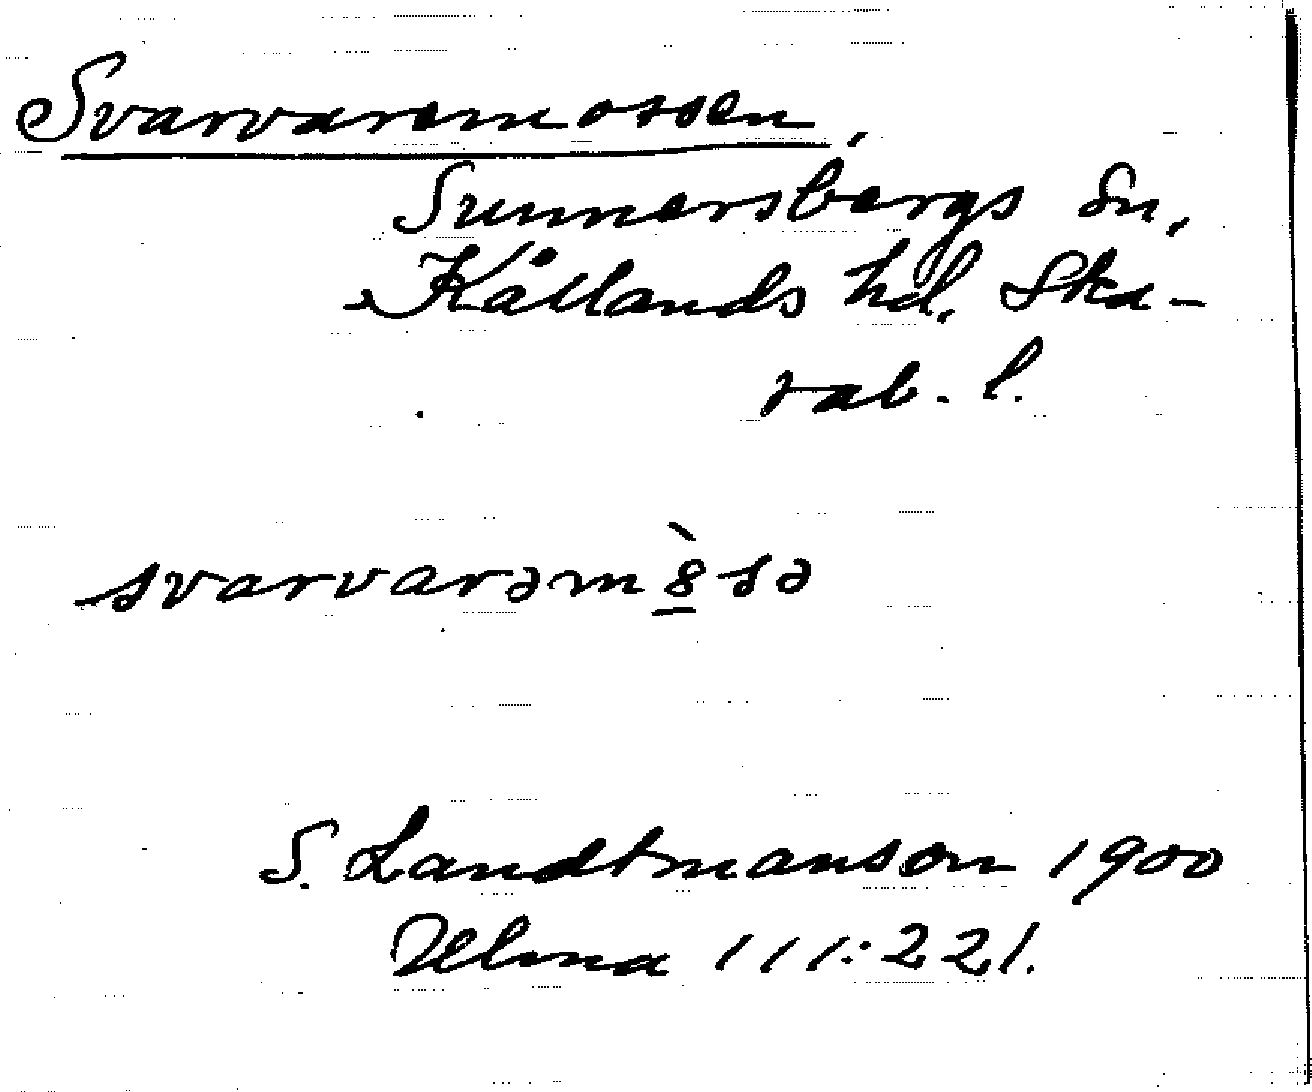 Svarvaremossen,
Sunnersbergs Sn,
Kållands hd. Ska-
rab. l.
svarvarəm8̲̀sə
S. Landtmanson 1900
Ulma 111:221.